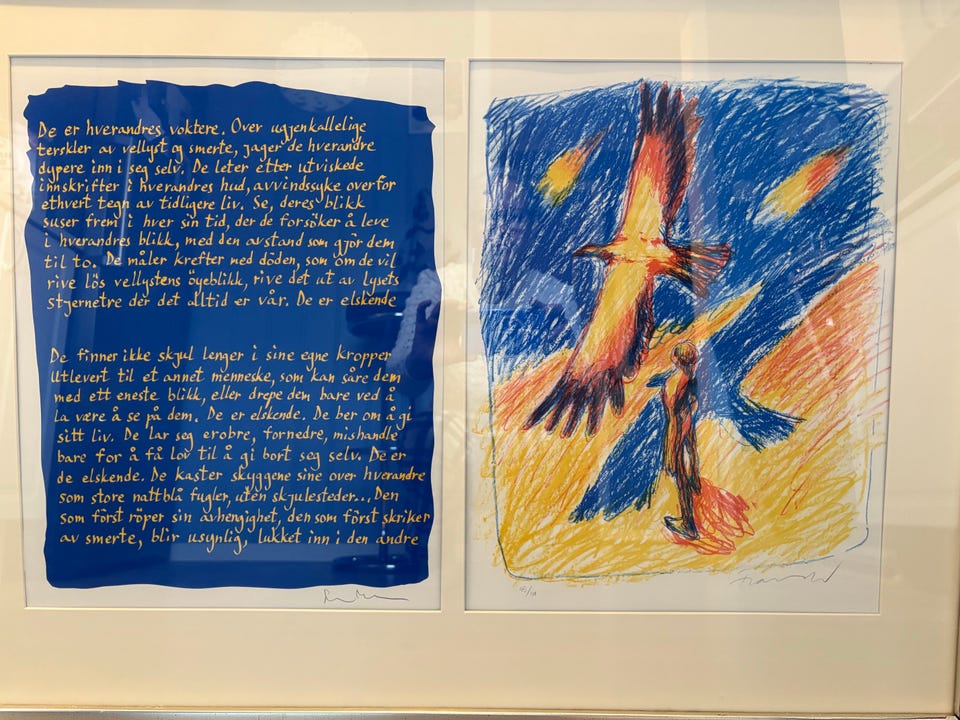 De er hverandres voktere. Over ugjenkallelige
terskler av vellyst og smerte, jager de hverandre
dypere inn i seg selv. De leter etter utviskede
innskrifter i hverandres hud, avvindssyke overfor
ethvert tegn av tidligere liv. Se, deres blikk
suser frem i hver sin tid, der de forsöker å leve
i hverandres blikk, med den avstand som gjör dem
til to. De måler krefter med döden, som om de vil
rive lös vellystens öyeblikk, rive det ut av lysets
stjernetre der det alltid er vår. De er elskende
De finner ikke skjul lenger i sine egne kropper
Utlevert til et annet menneske, som kan såre dem
med ett eneste blikk, eller drepe dem bare ved å
la være å se på dem. De er elskende. De ber om å gi
sitt liv. De lar seg erobre, fornedre, mishandle
bare for å få lov til å gi bort seg selv. De er
de elskende. De kaster skyggene sine over hverandre
som store nattblå fugler, uten skjulesteder... Den
som först röper sin avhengighet, den som först skriker
av smerte, blir usynlig, lukket inn i den andre